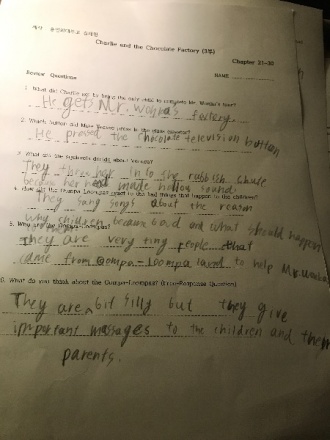 Charlie and the Chocolate Factory (3부)
Chapter 21-30
Review Questions
NAME
1. What did Charlie get for being the only child to complete Mr. Wonka's tour?
He gets Mr. Wonka's factory.
2. Which button did Mike Teavee press in the
He pressed the Chocolate television button
3. What did the squirrels decide about Veruca?
They threw her into the rubbish chute
because her head made hollow sound.
4. How did the Oompa-Loompas react to the bad things that happen to the children?
They sang songs about the reason
why children became bad and what should happen
5. Who are the Oompa-Loompas?
They are very tiny people that
came from Oompa-Loompa land to help Mr. Wonka
6. What do you think about the Oompa-Loompas? (Free-Response Question)
They are a bit silly but they give
important messages to the children and their
parents.